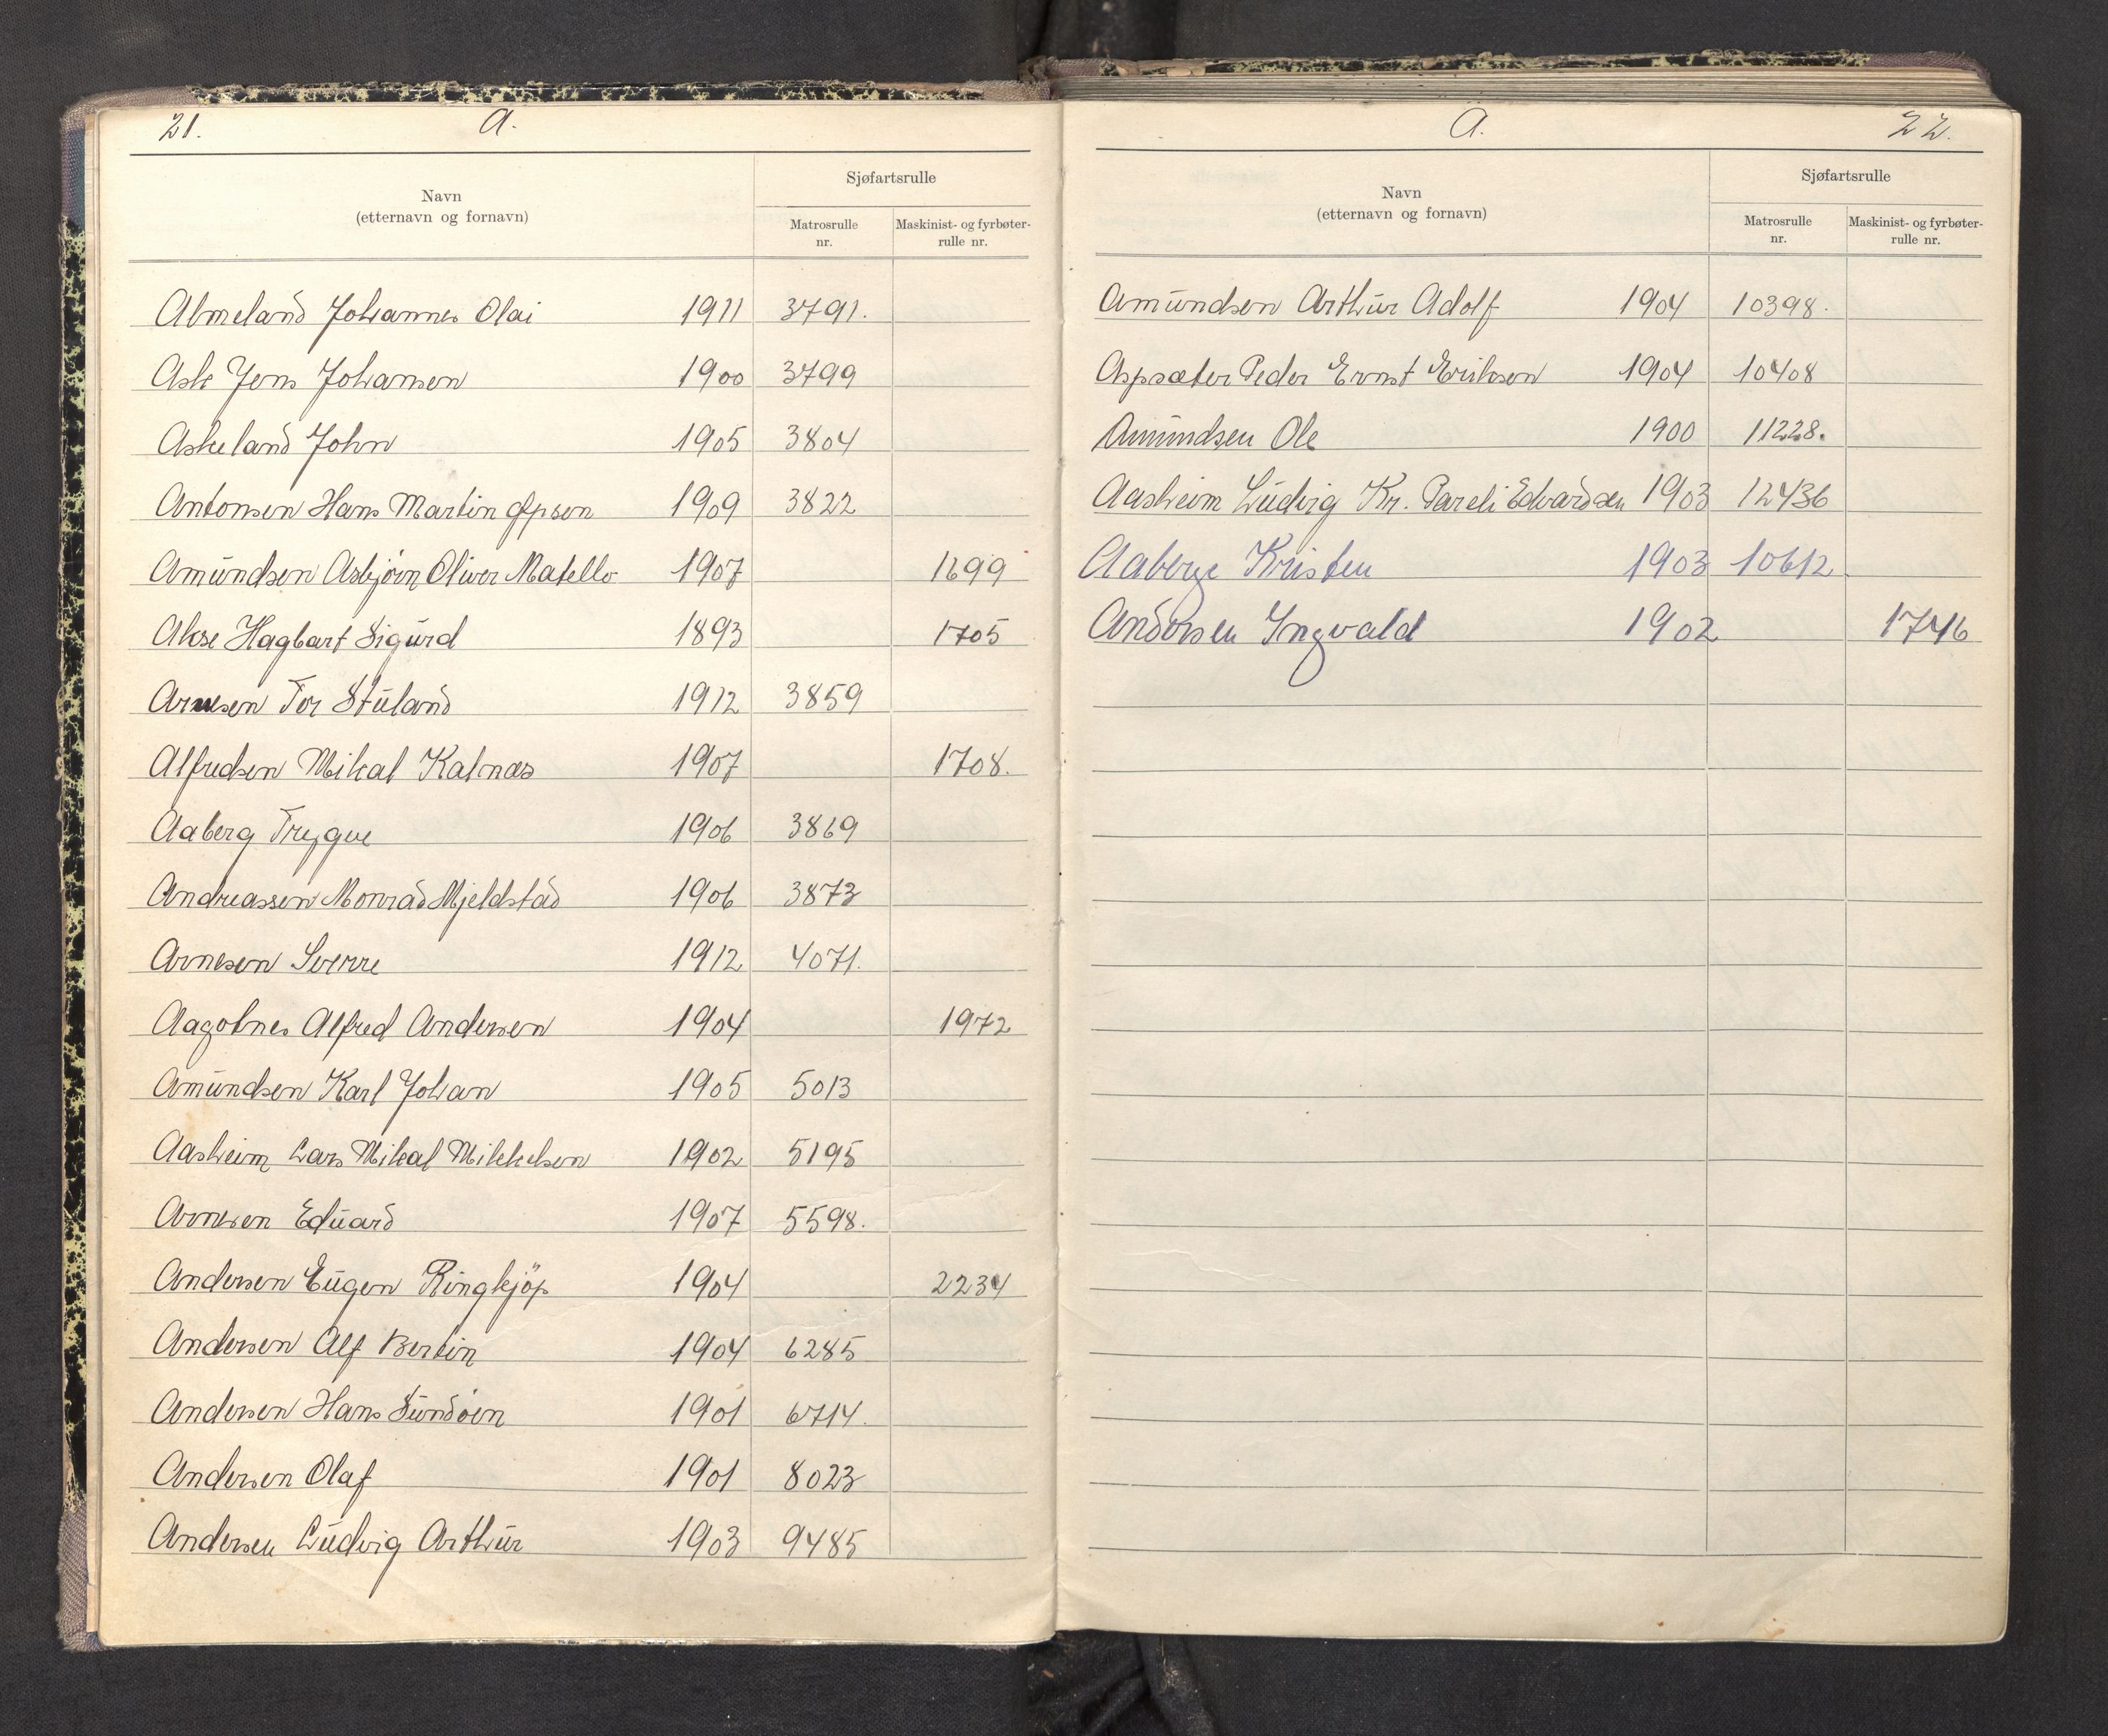 21. A.
Navn
(etternavn og fornavn)
Sjøfartsrulle
Matrosrulle
nr.
Maskinist- og fyrbøter-
rulle nr.
Almeland Johannes Olai 1911 3791.
Ask Jens Johansen 1900 3799
Askeland John 1905 3804
Antonsen Hans Martin 1909 3822
Amundsen Asbjørn Oliver 1907 1699
Akse Hagbart Sigurd 1893 1705
Arnesen Tor Stuland 1912 3859
Alfredsen Mikal Kalnæs 1907 1708.
Aaberg Trygve 1906 3869
Andreassen Monrad Mjeldstad 1906 3873
Arnesen Sverre 1912 4071.
Aagotnes Alfred Andersen 1904 1972
Amundsen Karl Johan 1905 5013
Aasheim Lars Mikal Mikkelsen 1902 5195
Arnesen Eduard 1907 5598.
Andersen Eugen Ringkjøp 1904 2234
Andersen Alf Bertin 1904 6285
Andersen Hans Sundøen 1901 6714.
Andersen Olaf 1901 8023
Andersen Ludvig Arthur 1903 9485
A. 22.
Navn
(etternavn og fornavn)
Sjøfartsrulle
Matrosrulle
nr.
Maskinist- og fyrbøter-
rulle nr.
Amundsen Arthur Adolf 1904 10398.
Aspsæter Peder Ernst Eriksen 1904 10408
Amundsen Ole 1900 11228.
Aasheim Ludvig Kr. Pareli Edvardsen 1903 12436
Aaberge Kristen 1903 10612.
Andersen Yngvald 1902 1746